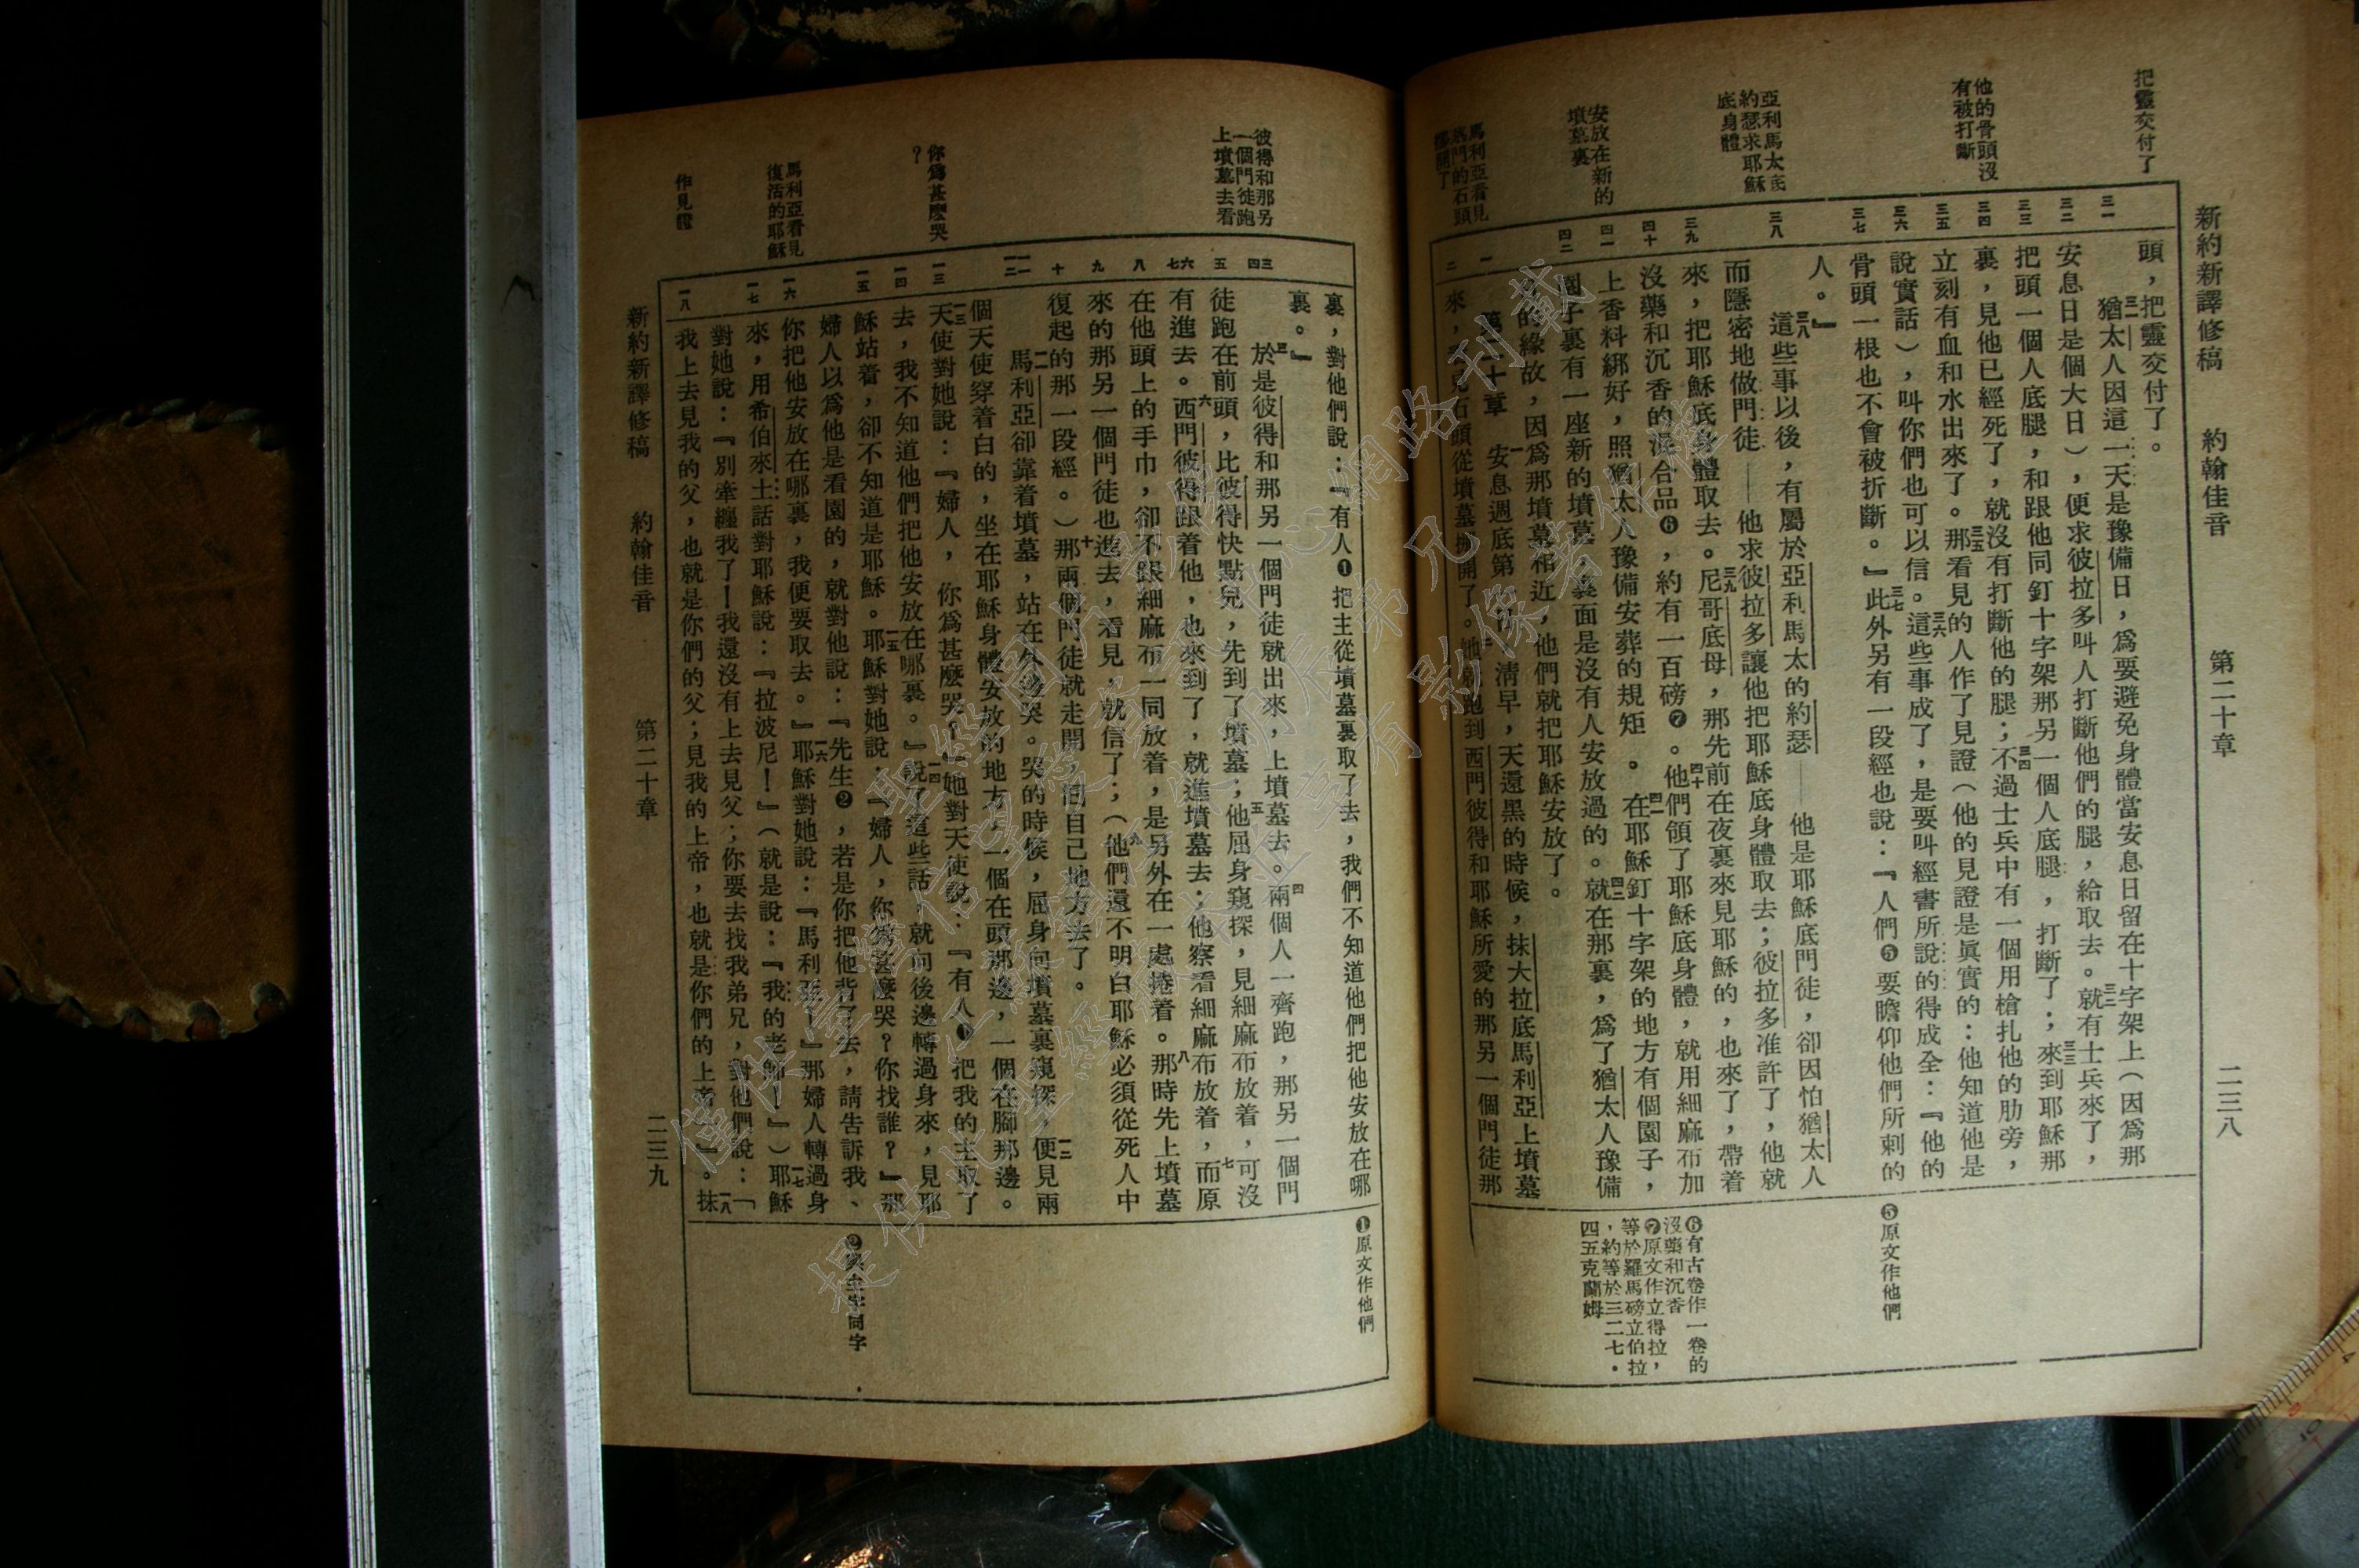 新約新譯修稿　約翰佳音　第二十章　二三八
把靈交付了
他的骨頭沒
有被打斷
亞利馬太底
約瑟求耶穌
底身體
安放在新的
墳墓裏
馬利亞看見
三一
三二
三三
三四
三五
三六
三七
三八
三九
四十
四一
四二
一
二
頭，把靈交付了。
三一猶太人因這一天是豫備日，爲要避免身體當安息日留在十字架上（因爲那
安息日是個大日），便求彼拉多叫人打斷他們的腿，給取去。三二就有士兵來了，
把頭一個人底腿，和跟他同釘十字架那另一個人底腿，打斷了；三三來到耶穌那
裏，見他已經死了，就沒有打斷他的腿；三四不過士兵中有一個用槍扎他的肋旁，
立刻有血和水出來了。三五那看見的人作了見證（他的見證是眞實的：他知道他是
說實話），叫你們也可以信。三六這些事成了，是要叫經書所說的得成全：『他的
骨頭一根也不會被折斷。』三七此外另有一段經也說：『人們❺要瞻仰他們所刺的
人。』
三八這些事以後，有屬於亞利馬太的約瑟——他是耶穌底門徒，卻因怕猶太人
而隱密地做門徒——他求彼拉多讓他把耶穌底身體取去；彼拉多准許了，他就
來，把耶穌底身體取去。三九尼哥底母，那先前在夜裏來見耶穌的，也來了，帶着
沒藥和沉香的混合品❻，約有一百磅❼。四十他們領了耶穌底身體，就用細麻布加
上香料綁好，照猶太人豫備安葬的規矩。四一在耶穌釘十字架的地方有個園子，
園子裏有一座新的墳墓，裏面是沒有人安放過的。四二就在那裏，爲了猶太人豫備
的緣故，因爲那墳墓相近，他們就把耶穌安放了。
第二十章　一安息週底第一日，清早，天還黑的時候，抹大拉底馬利亞上墳墓
來，看見石頭從墳墓挪開了。二她就跑到西門彼得和耶穌所愛的那另一個門徒那
❺原文作他們
❻有古卷作一卷的
沒藥和沉香
❼原文作立得拉，
等於羅馬磅立伯拉
，約等於三二七．
四五克蘭姆
彼得和那另
一個門徒跑
上墳墓去看
你爲甚麼哭
？
馬利亞看見
復活的耶穌
作見證
三
四
五
六
七
八
九
十
一一
一二
一三
一四
一五
一六
一七
一八
裏，對他們說：『有人❶把主從墳墓裏取了去，我們不知道他們把他安放在哪
裏。』
三於是彼得和那另一個門徒就出來，上墳墓去。四兩個人一齊跑，那另一個門
徒跑在前頭，比彼得快點兒，先到了墳墓；五他屈身窺探，見細麻布放着，可沒
有進去。六西門彼得跟着他，也來到了，就進墳墓去；他察看細麻布放着，七而原
在他頭上的手巾，卻不跟細麻布一同放着，是另外在一處捲着。八那時先上墳墓
來的那另一個門徒也進去，看見，就信了；九（他們還不明白耶穌必須從死人中
復起的那一段經。）十那兩個門徒就走開，回自己地方去了。
一一馬利亞卻靠着墳墓，站在外邊哭。哭的時候，屈身向墳墓裏窺探，一二便見兩
個天使穿着白的，坐在耶穌身體安放的地方，一個在頭那邊，一個在腳那邊。
一三天使對她說：『婦人，你爲甚麼哭？』她對天使說：『有人❶把我的主取了
去，我不知道他們把他安放在哪裏。』一四說了這些話，就向後邊轉過身來，見耶
穌站着，卻不知道是耶穌。一五耶穌對她說：『婦人，你爲甚麼哭？你找誰？』那
婦人以爲他是看園的，就對他說：『先生❷，若是你把他背了去，請告訴我、
你把他安放在哪裏，我便要取去。』一六耶穌對她說：『馬利亞！』那婦人轉過身
來，用希伯來土話對耶穌說：『拉波尼！』（就是說：『我的老師！』）一七耶穌
對她說：『別牽纏我了！我還沒有上去見父；你要去找我弟兄，對他們說：「
我上去見我的父，也就是你們的父；見我的上帝，也就是你們的上帝」』。一八抹
❶原文作他們
❷與主字同字
新約新譯修稿　約翰佳音　第二十章　二三九